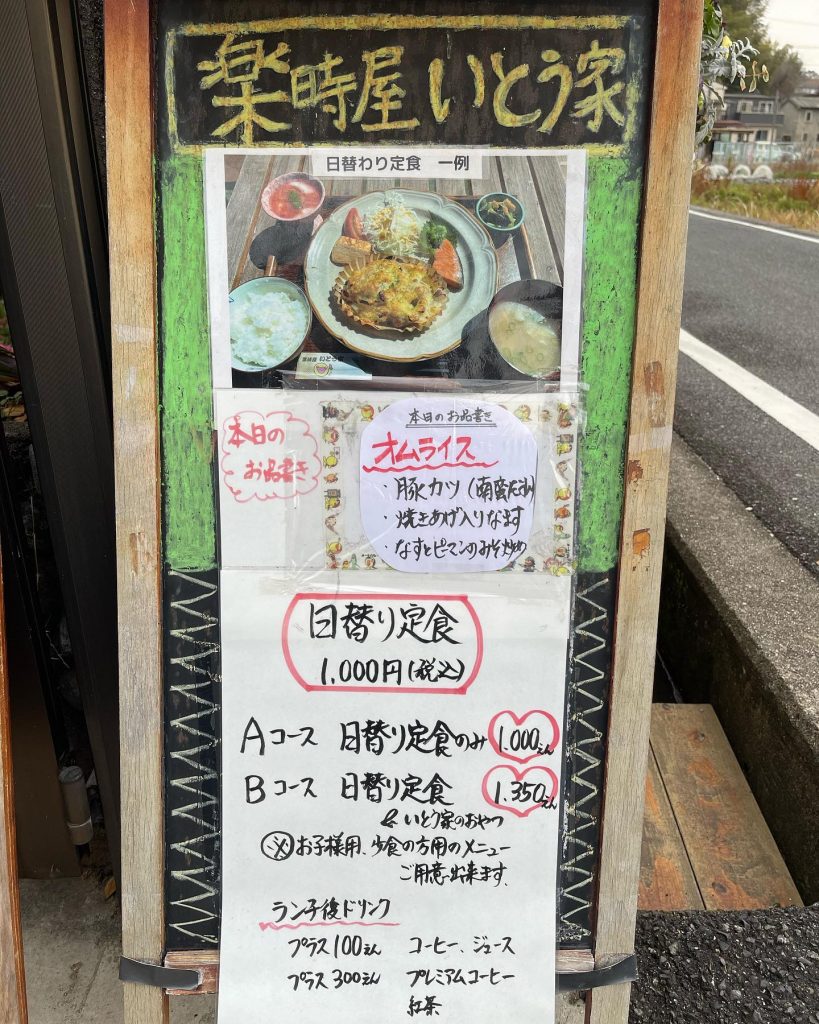 楽時屋 いとう家
日替わり定食 一例
楽時屋 いとう家
本日の
お品書き
本日のお品書き
オムライス
・豚カツ(南蛮だれ)
・焼きあげ入りなます
・なすとピーマンのみそ炒め
日替り定食
1,000円(税込)
Aコース 日替り定食のみ 1.000えん
Bコース 日替り定食 1.350えん
& いとう家のおやつ
※お子様用、少食の方用のメニュー
ご用意出来ます。
ランチ後ドリンク
プラス100えん コーヒー、ジュース
プラス300えん プレミアムコーヒー
紅茶